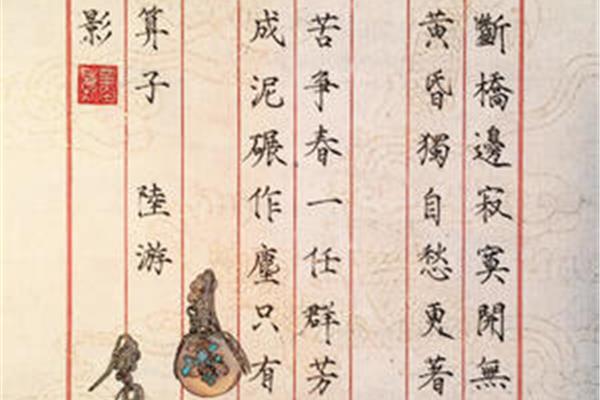 斷橋邊寂寞開無
黃昏獨自愁更著
苦爭春一任群芳
成泥碾作塵只有
算子 陸游
影